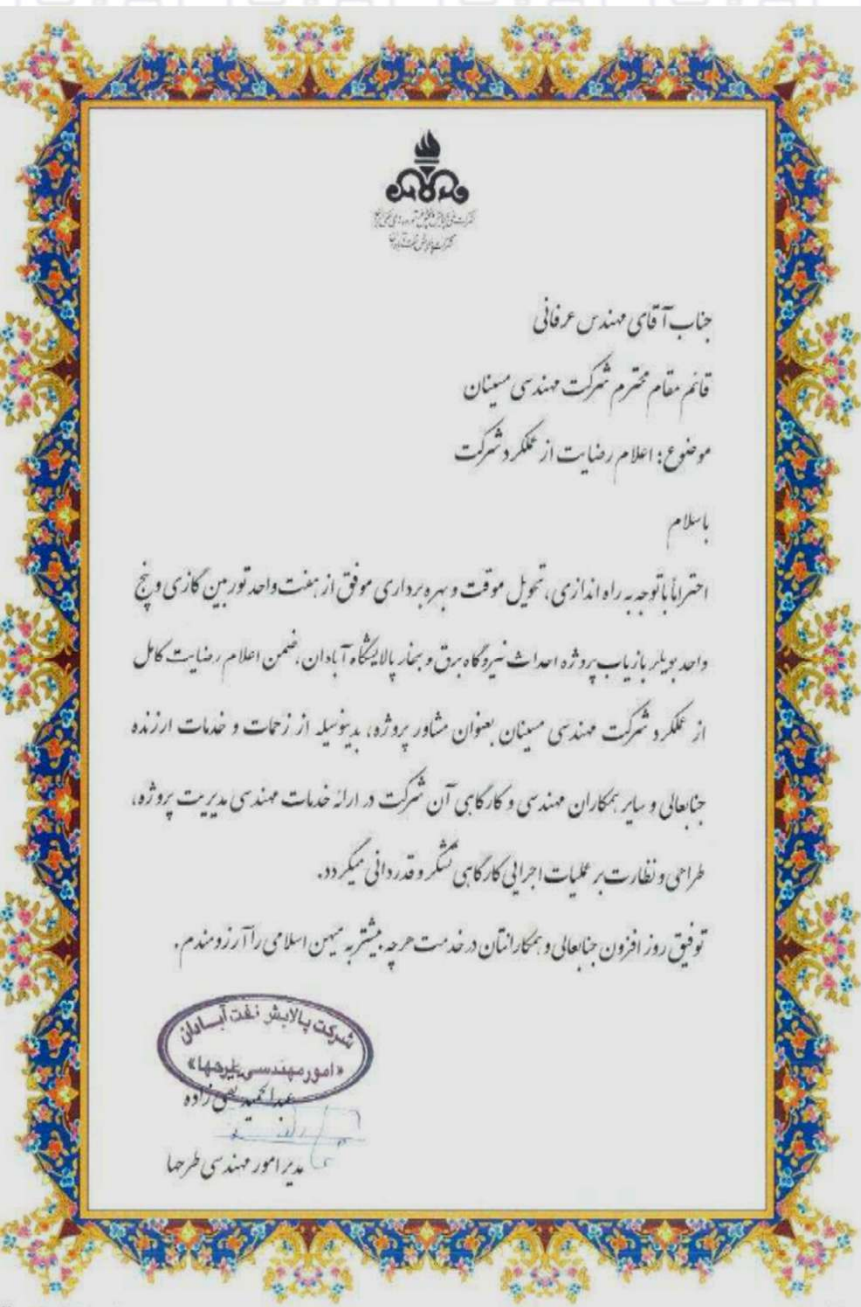 شرکت پالایش نفت آبادان
جناب آقای مهندس عرفانی
قائم مقام محترم شرکت مهندسی مسینان
موضوع: اعلام رضایت از عملکرد شرکت
باسلام
احتراماً باتوجه به راه اندازی، تحویل موقت و بهره برداری موفق از هفت واحد توربین گازی و پنج
واحد بویلر بازیاب پروژه احداث نیروگاه برق و بخار پالایشگاه آبادان، ضمن اعلام رضایت کامل
از عملکرد شرکت مهندسی مسینان بعنوان مشاور پروژه، بدینوسیله از زحمات و خدمات ارزنده
جنابعالی و سایر همکاران مهندسی و کارگاهی آن شرکت در ارائه خدمات مهندسی مدیریت پروژه،
طراحی و نظارت بر عملیات اجرایی کارگاهی تشکر و قدردانی میگردد.
توفیق روز افزون جنابعالی و همکارانتان در خدمت هرچه بیشتر به میهن اسلامی را آرزومندم.
شرکت پالایش نفت آبادان
«امور مهندسی طرحها»
عبدالحمید
مدیر امور مهندسی طرحها